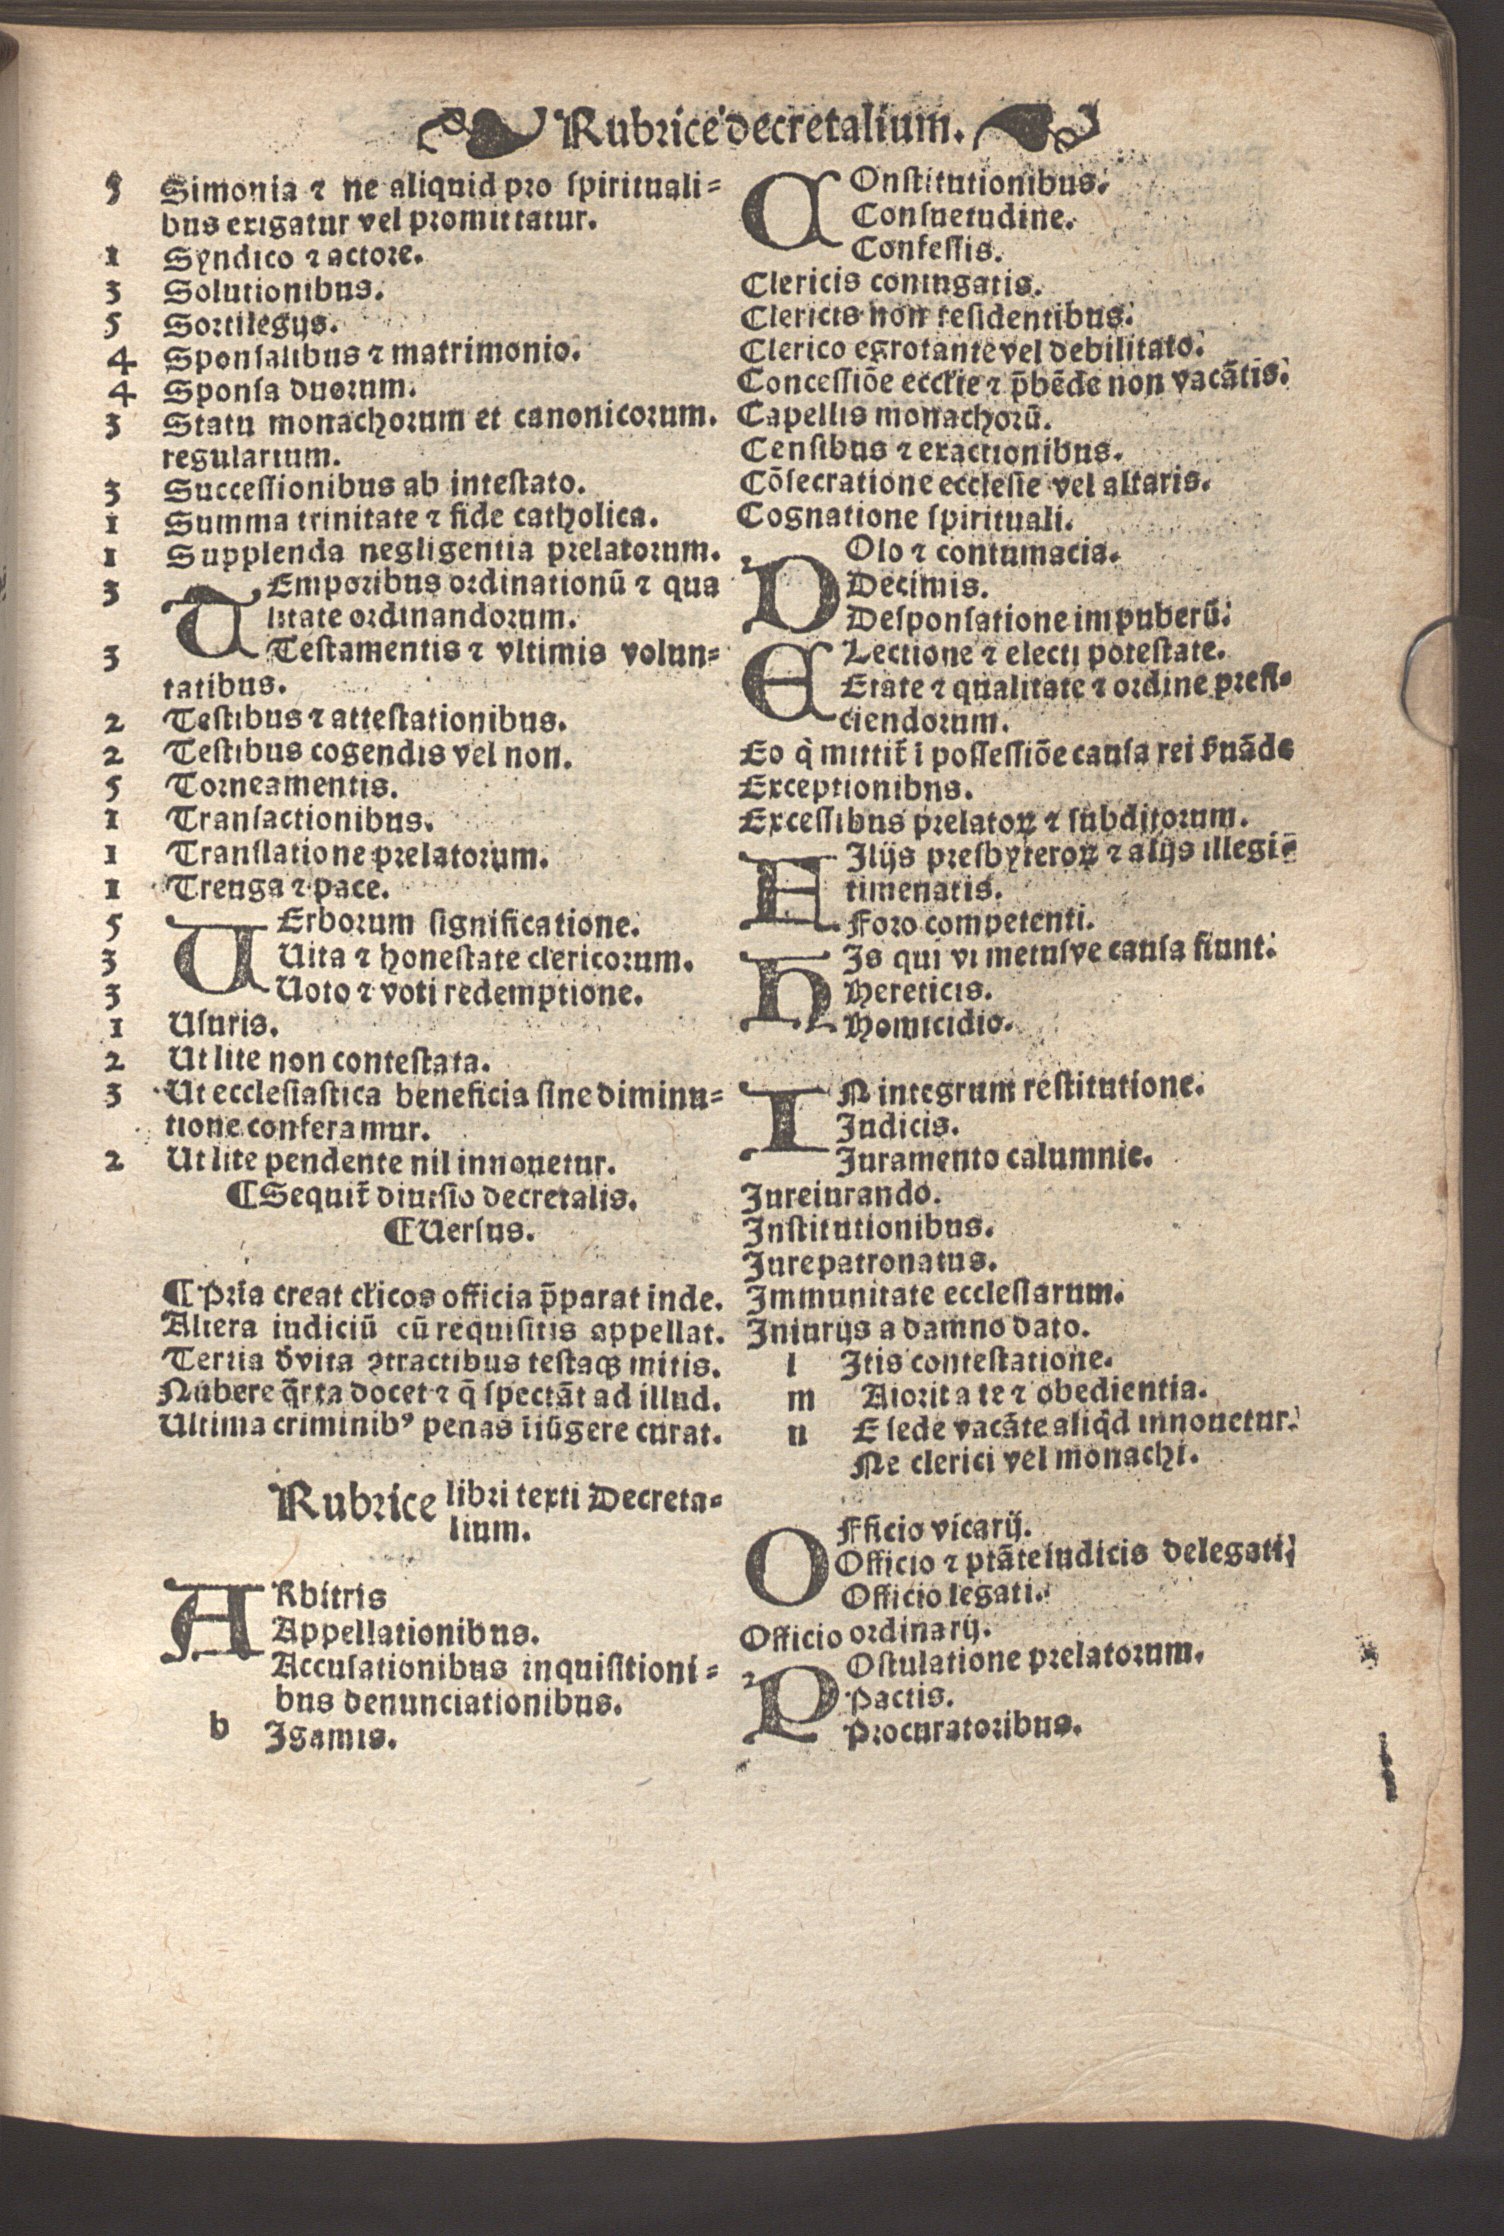 Rubrice decretalium.
5 Simonia ⁊ ne aliquid pro spirituali=
bus exigatur vel promittatur.
1 Syndico ⁊ actore.
3 Solutionibus.
5 Sortilegijs.
4 Sponsalibus ⁊ matrimonio.
4 Sponsa duorum.
3 Statu monachorum et canonicorum.
regularium.
3 Successionibus ab intestato.
1 Summa trinitate ⁊ fide catholica.
1 Supplenda negligentia prelatorum.
3 TEmporibus ordinationū ⁊ qua
litate ordinandorum.
3 Testamentis ⁊ vltimis volun=
tatibus.
2 Testibus ⁊ attestationibus.
2 Testibus cogendis vel non.
5 Torneamentis.
1 Transactionibus.
1 Translatione prelatorum.
1 Treuga ⁊ pace.
5 UErborum significatione.
3 Uita ⁊ honestate clericorum.
3 Uoto ⁊ voti redemptione.
1 Usuris.
2 Ut lite non contestata.
3 Ut ecclesiastica beneficia sine diminu=
tione conferamur.
2 Ut lite pendente nil innouetur.
¶Sequit̄ diuisio decretalis.
¶Uersus.
¶Pria creat cl̄icos officia p̄parat inde.
Altera iudiciū cū requisitis appellat.
Tertia d̄ vita ꝯtractibus testaqꝫ mitis.
Nubere q̄rta docet ⁊ q̄ spectāt ad illud.
Ultima criminibꝰ penas īiūgere curat.
Rubrice libri texti Decreta=
lium.
ARbitris
Appellationibus.
Accusationibus inquisitioni=
bus denunciationibus.
b Igamis.
COnstitutionibus.
Consuetudine.
Confessis.
Clericis coniugatis.
Clericis non residentibus.
Clerico egrotante vel debilitato.
Concessiōe eccl̄ie ⁊ p̄bēde non vacātis.
Capellis monachorū.
Censibus ⁊ exactionibus.
Cōsecratione ecclesie vel altaris.
Cognatione spirituali.
DOlo ⁊ contumacia.
Decimis.
Desponsatione impuberū.
ELectione ⁊ electi potestate.
Etate ⁊ qualitate ⁊ ordine prefi=
ciendorum.
Eo q̇ mittit̄ ī possessiōe causa rei s̄uāde
Exceptionibus.
Excessibus prelatoꝝ ⁊ subditorum.
FIlijs presbyteroꝝ ⁊ alijs illegi=
timenatis.
Foro competenti.
HIs qui vi metusve causa fiunt.
Hereticis.
Homicidio.
IN integrum restitutione.
Iudicis.
Iuramento calumnie.
Iureiurando.
Institutionibus.
Iurepatronatus.
Immunitate ecclesiarum.
Iniurijs a damno dato.
l Itis contestatione.
m Aiorita te ⁊ obedientia.
n E sede vacāte aliq̇d innouetur.
Ne clerici vel monachi.
OFficio vicarij.
Officio ⁊ ptāte iudicis delegati.
Officio legati.
Officio ordinarij.
POstulatione prelatorum.
Pactis.
Procuratoribus.